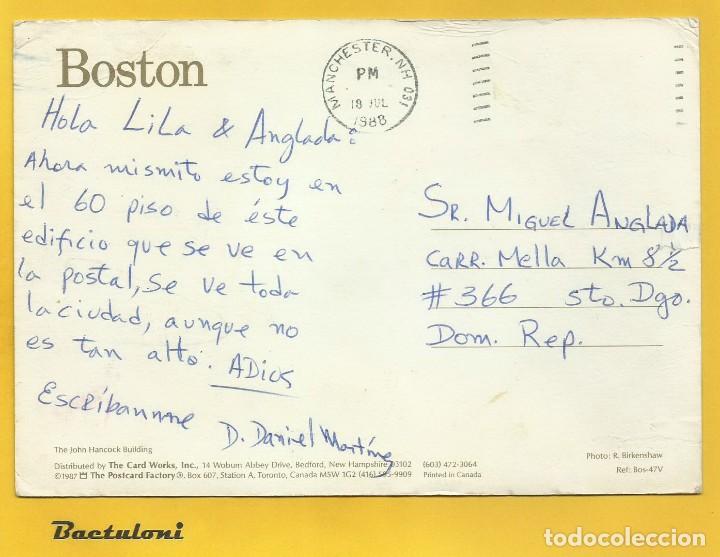 Boston
MANCHESTER, NH 031
PM
18 JUL
1988
Hola LiLa & Anglada:
Ahora mismito estoy en
el 60 piso de éste
edificio que se ve en
la postal, se ve toda
la ciudad, aunque no
es tan alto. ADios
Escríbanme
D. Daniel Martínez
SR. MIGUEL ANGLADA
CARR. Mella Km 8½
#366 Sto. Dgo.
Dom. Rep.
The John Hancock Building
Distributed by The Card Works, Inc., 14 Woburn Abbey Drive, Bedford, New Hampshire 03102 (603) 472-3064
©1987 The Postcard Factory®, Box 607, Station A, Toronto, Canada M5W 1G2 (416) 595-9909 Printed in Canada
Photo: R. Birkenshaw
Ref: Bos-47V
Bactuloni
todocoleccion